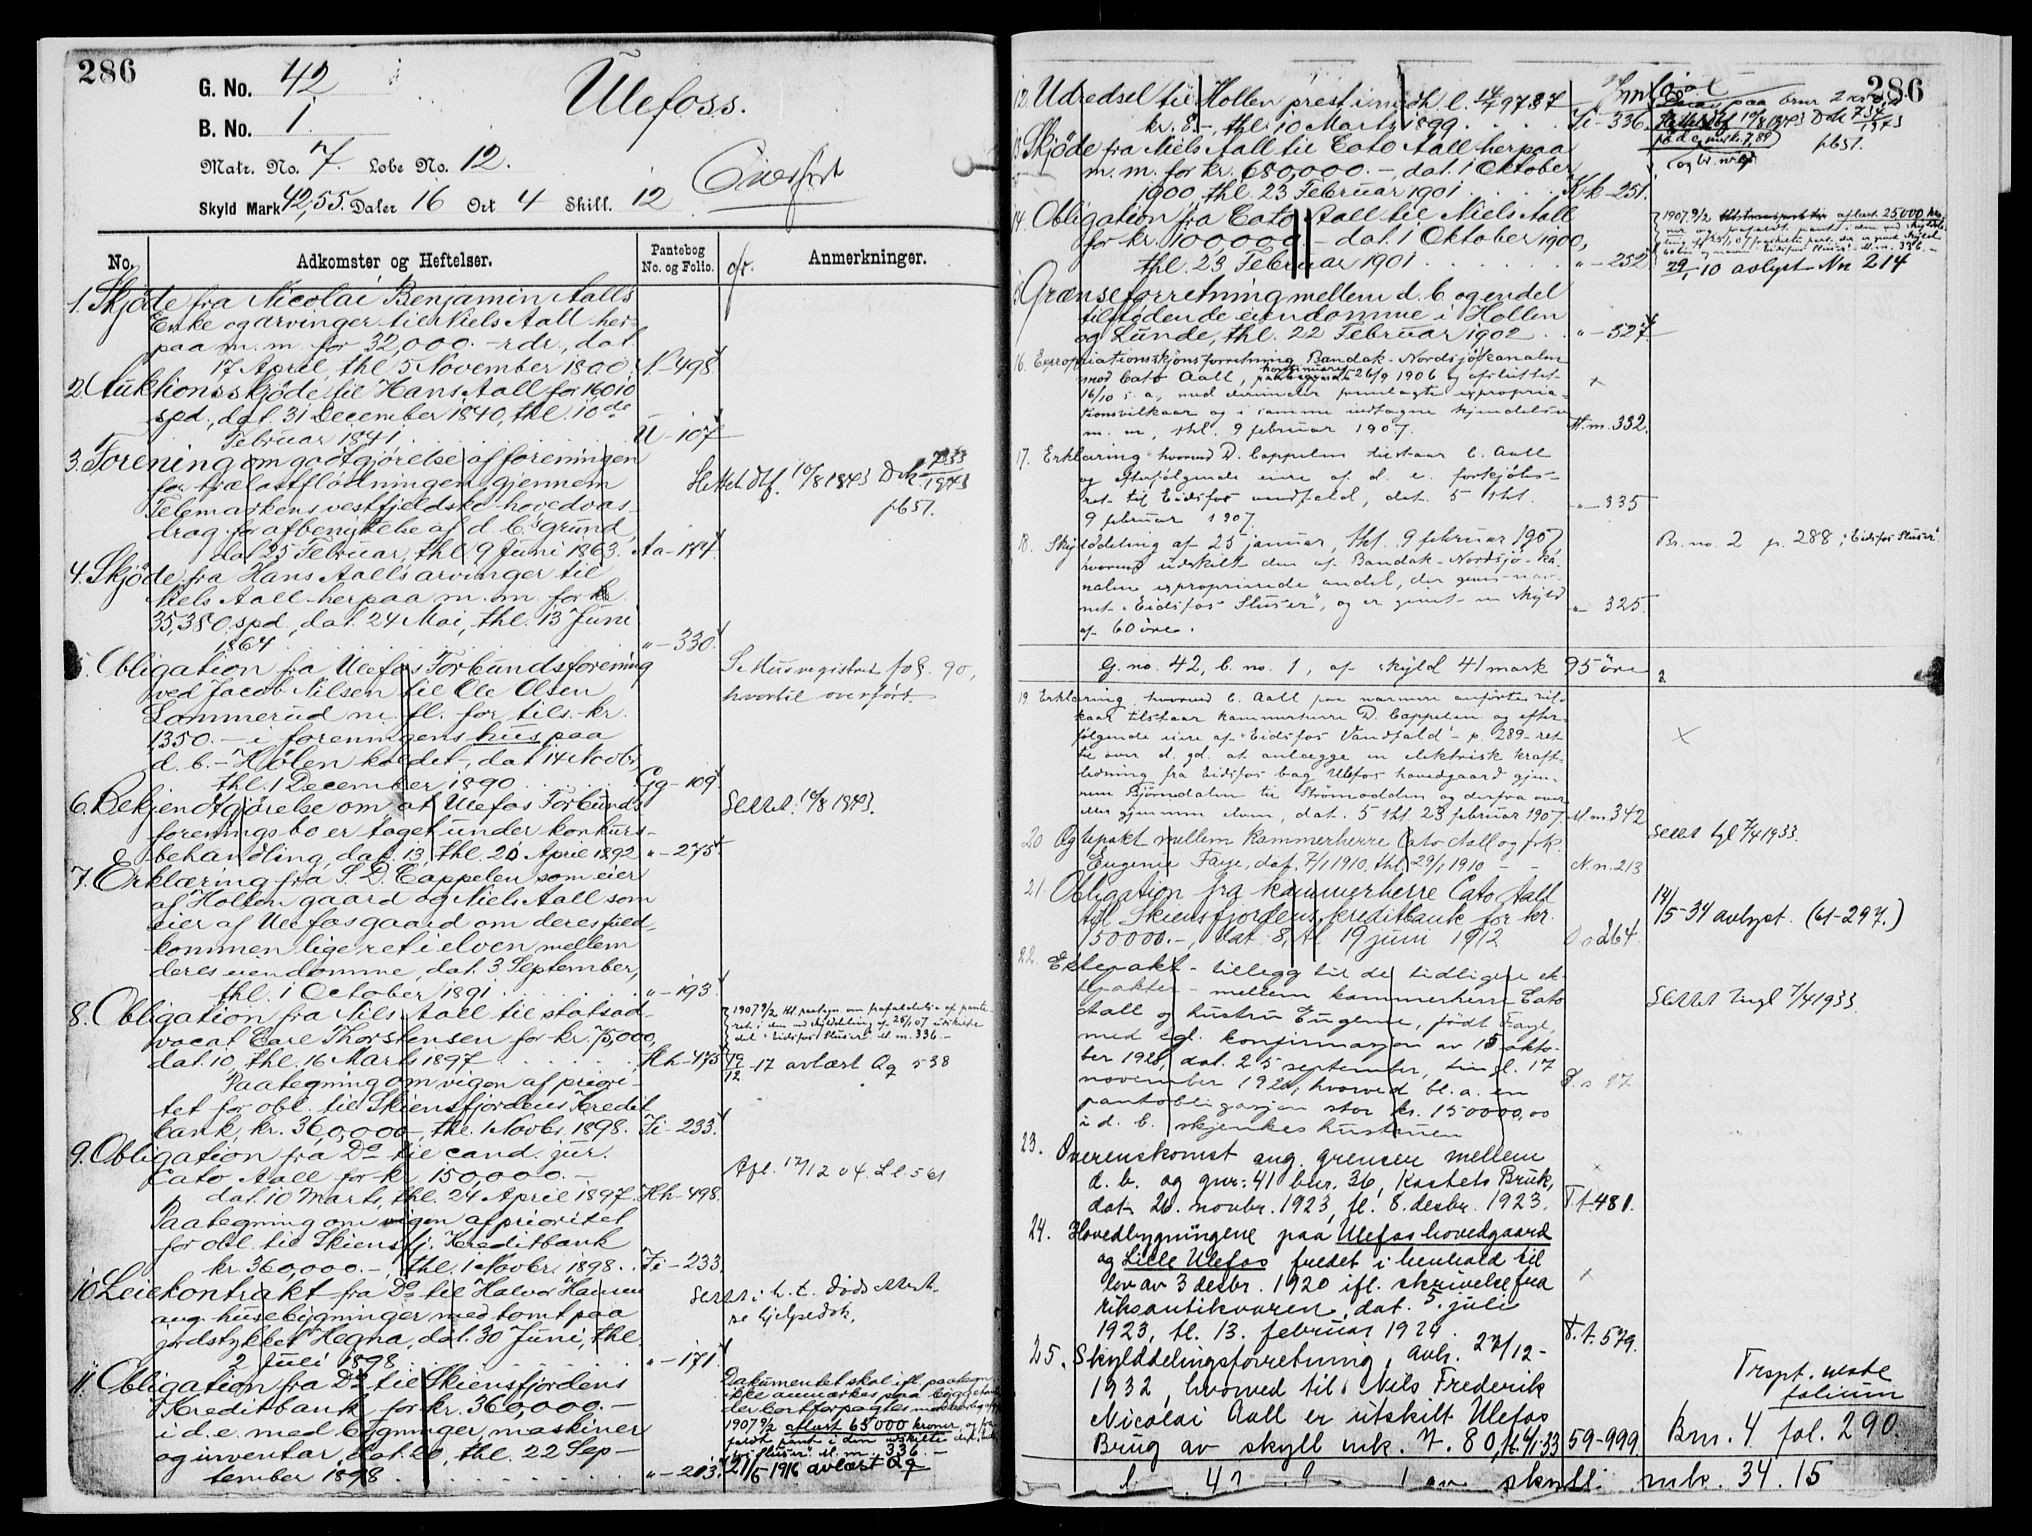 286
G. No. 42
Ulefoss.
B. No. 1
Matr. No. 7 Løbe No. 12.
Overført
Skyld Mark 42,55. Daler 16 Ort 4 Skill. 12
No. Adkomster og Heftelser. Pantebog No. og Folio. Anmerkninger.
1. Skjöde fra Nicolai Benjamin Aalls
Enke og arvinger til Niels Aall her-
paa m. m. for 32,000.- rdr., dat.
17 April, thl. 5 November 1800. N-498.
2. Auktionsskjöde til Hans Aall for 16010
spd., dat. 31 December 1840, thl. 10de
Februar 1841. U-107
3. Forening om godtgjørelse af foreningen
for trælastflödningen gjennem
Telemarkens vestfjeldske hovedvas-
drag for afbenyttelse af d. b.'s grund,
dat. 25 Februar, thl. 9 Juni 1863. Aa-184.
Slettet hf. 10/8 1943 Dok 733/1943
pb51.
4. Skjöde fra Hans Aalls arvinger til
Niels Aall herpaa m. m. for
35,380 spd., dat. 24 Mai, thl. 13 Juni
1864. "-330.
5. Obligation fra Ulefos Forbundsforening
ved Jacob Nilsen til Ole Olsen
Lommerud m. fl. for tils. kr.
1350.- i foreningens hus paa
d. b. - Hølen kaldet -, dat. 14 Novbr.,
thl. 1 December 1890. Gg-109
Se Husregistret fol. 90,
hvortil overført.
6. Bekjendtgjørelse om at Ulefos Forbunds-
forenings bo er taget under konkurs-
behandling, dat. 13, thl. 20 April 1892 "-275
Slettet 10/8 1943.
7. Erklæring fra S. D. Cappelen som eier
af Holden gaard og Niels Aall som
eier af Ulefosgaard om deres fuld-
kommen lige ret i elven mellem
deres eiendomme, dat. 3 September,
thl. 1 October 1891. "-193
8. Obligation fra Niels Aall til statsad-
vocat Carl Thorstensen for kr. 75,000,
dat. 10, thl. 16 Marts 1897. Hh-475
1907 9/2 thl paategn om frafaldelse af pante
ret i den ved skyldeling af 25/1 07 utskilte
del "Eidsfos Sluser" M. m. 336.-
19/12-17 avlæst Qq 538
Paategning om vigen af priori-
tet for obl. til Skiensfjordens Kredit-
bank, kr. 360,000.-, thl. 1 Novbr. 1898. Ii-233.
9. Obligation fra Do til cand. jur.
Cato Aall for kr. 150,000.-
dat. 10 Marts, thl. 24 April 1897. Hh-498.
Afl. 17/12 04. Ll 561
Paategning om vigen af prioritet
for obl. til Skiensfj. Kreditbank
kr. 360,000.-, thl. 1 Novbr. 1898. Ii-233.
10. Leiekontrakt fra Do til Halvor Hansen
ang. husebygninger med tomt paa
jordstykket Hegna, dat. 30 Juni, thl.
2 Juli 1898. "-171.
11. Obligation fra Do til Skiensfjordens
Kreditbank for kr. 360,000.-
i d. e. med bygninger, maskiner
og inventar, dat. 20, thl. 22 Sep-
tember 1898. "-213.
Dokumentet skal ifl. paategn.
ikke anmærkes paa
1907 9/2 aflæst 65000 kroner og fra-
faldt pant i den udskilte
M. m. 336.-
21/6 1916 avlæst Qq
286
12. Udredsel til Hollen prest i m. dh. l.
kr. 8.-, thl. 10 Marts 1899. Ii-336.
13. Skjöde fra Niels Aall til Cato Aall herpaa
m. m. for kr. 680,000.-, dat. 1 Oktober
1900, thl. 23 Februar 1901. Kk-251.
14. Obligation fra Cato Aall til Niels Aall
for kr. 100,000.- dat. 1 Oktober 1900,
thl. 23 Februar 1901. "-252
29/1 10 avlyst Nn 214
15. Grænseforretning mellem d. b. og endel
tilstødende eiendomme i Hollen
og Lunde, thl. 22 Februar 1902. "-527
16. Expropriationsskjönsforretning Bandak-Nordsjökanalen
mod Cato Aall, 26/9 1906 og afsluttet
16/10 s. a., med derunder fremlagte expropria-
tionsvilkaar og i samme indtagne kjendelser
m. m., thl. 9 februar 1907. M.m. 332.
17. Erklæring hvorved D. Cappelen tilstaar C. Aall
og efterfølgende eiere af d. e. forkjøbs-
ret til Eidsfos vandfald, dat. 5 thl.
9 februar 1907. "-335
18. Skylddeling af 25 januar, thl. 9 februar 1907
hvorved udskilt den af Bandak-Nordsjö-ka-
nalen exproprierede andel, der gives nav-
net "Eidsfos Sluser", og er givet en skyld
af 60 øre. "- 325
Br. no. 2 p. 288 "Eidsfos Sluser"
G. no. 42, b. no. 1, af skyld 41 mark 95 öre
19. Erklæring, hvorved C. Aall paa nærmere anførte vil-
kaar tilstaar kammerherre D. Cappelen og efter-
følgende eiere af "Eidsfos Vandfald" - p. 289 - ret
til over d. gd. at anlægge en elektrisk kraft-
ledning fra Eidsfos bag Ulefos hovedgaard gjen-
nem Bjørndalen til Strømodden og derfra over
eller gjennem elven, dat. 5 thl. 23 februar 1907 M.m. 342
20. Egtepakt mellem kammerherre Cato Aall og frk.
Eugenie Faye, dat. 7/1 1910, thl. 29/1 1910 - - N.n. 213
Slettet tgl 7/4 1933
21. Obligation fra kammerherre Cato Aall
til Skiensfjordens kreditbank for kr.
50000.-, dat. 8, thl 19 juni 1912 Oo 264.
14/5-34 avlyst. (61-297.)
22. Ektepakt - tillegg til de tidligere ek-
tepakter - mellem kammerherre Cato
Aall og hustru Eugenie, født Faye,
med kgl. konfirmasjon av 15 okto-
ber 1921, dat. 25 september, tingl. 17
november 1921, hvorved bl. a. en
pantobligasjon stor kr. 150000,00
i d. b. skjenkes hustruen
Slettet tingl 7/4 1933
23. Overenskomst ang. grensen mellem
d. b. og gnr. 41 bnr. 36, Kastets Bruk,
dat. 26. novbr. 1923, tl. 8. desbr. 1923. T.t-481.
24. Hovedbygningene paa Ulefos hovedgaard
og Lille Ulefos fredet i henhold til
lov av 3 desbr. 1920 ifl. skrivelse fra
riksantikvaren, dat. 5. juli
1923, tl. 13. februar 1924. T.t. 579.
25. Skylddelingsforretning, avh. 22/12-
1932, hvorved til Nils Frederik
Nicolai Aall er utskilt Ulefos
Brug av skyll mk. 7.80, tl. 6/1-33 59-999
Trspt. neste
folium
Brn. 4 fol. 290.
1 av skyll: mk. 34.15